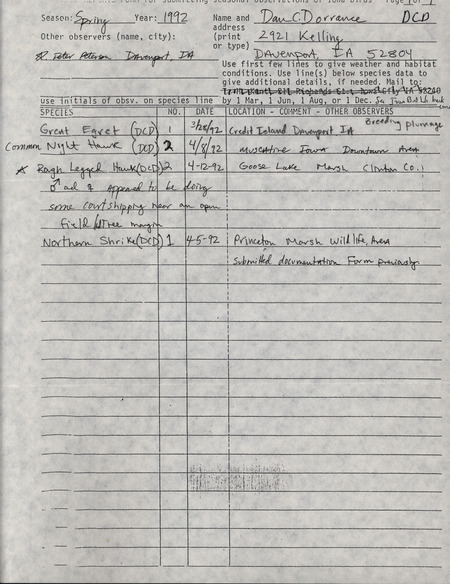 form for submitting seasonal observations of Iowa birds Page 1 of 1
Season: Spring Year: 1992 Name and Dan C. Dorrance DCD
Other observers (name, city): address
(print 2921 Kelling
or type) Davenport, IA 52804
Peter Petersen Davenport, IA
Use first few lines to give weather and habitat
conditions. Use line(s) below species data to
give additional details, if needed. Mail to:
use initials of obsv. on species line by 1 Mar, 1 Jun, 1 Aug, or 1 Dec.
SPECIES NO. DATE LOCATION - COMMENT - OTHER OBSERVERS
Great Egret (DCD) 1 3/28/92 Credit Island Davenport IA Breeding plumage
Common Night Hawk (DCD) 2 4/8/92 Muscatine Iowa Downtown Area
* Rough Legged Hawk (DCD) 2 4-12-92 Goose Lake Marsh Clinton Co.!
♂ ad & appeared to be doing
some courtshipping near an open
field /Tree margin
Northern Shrike (DCD) 1 4-5-92 Princeton Marsh Wildlife Area
submitted documentation Form previously